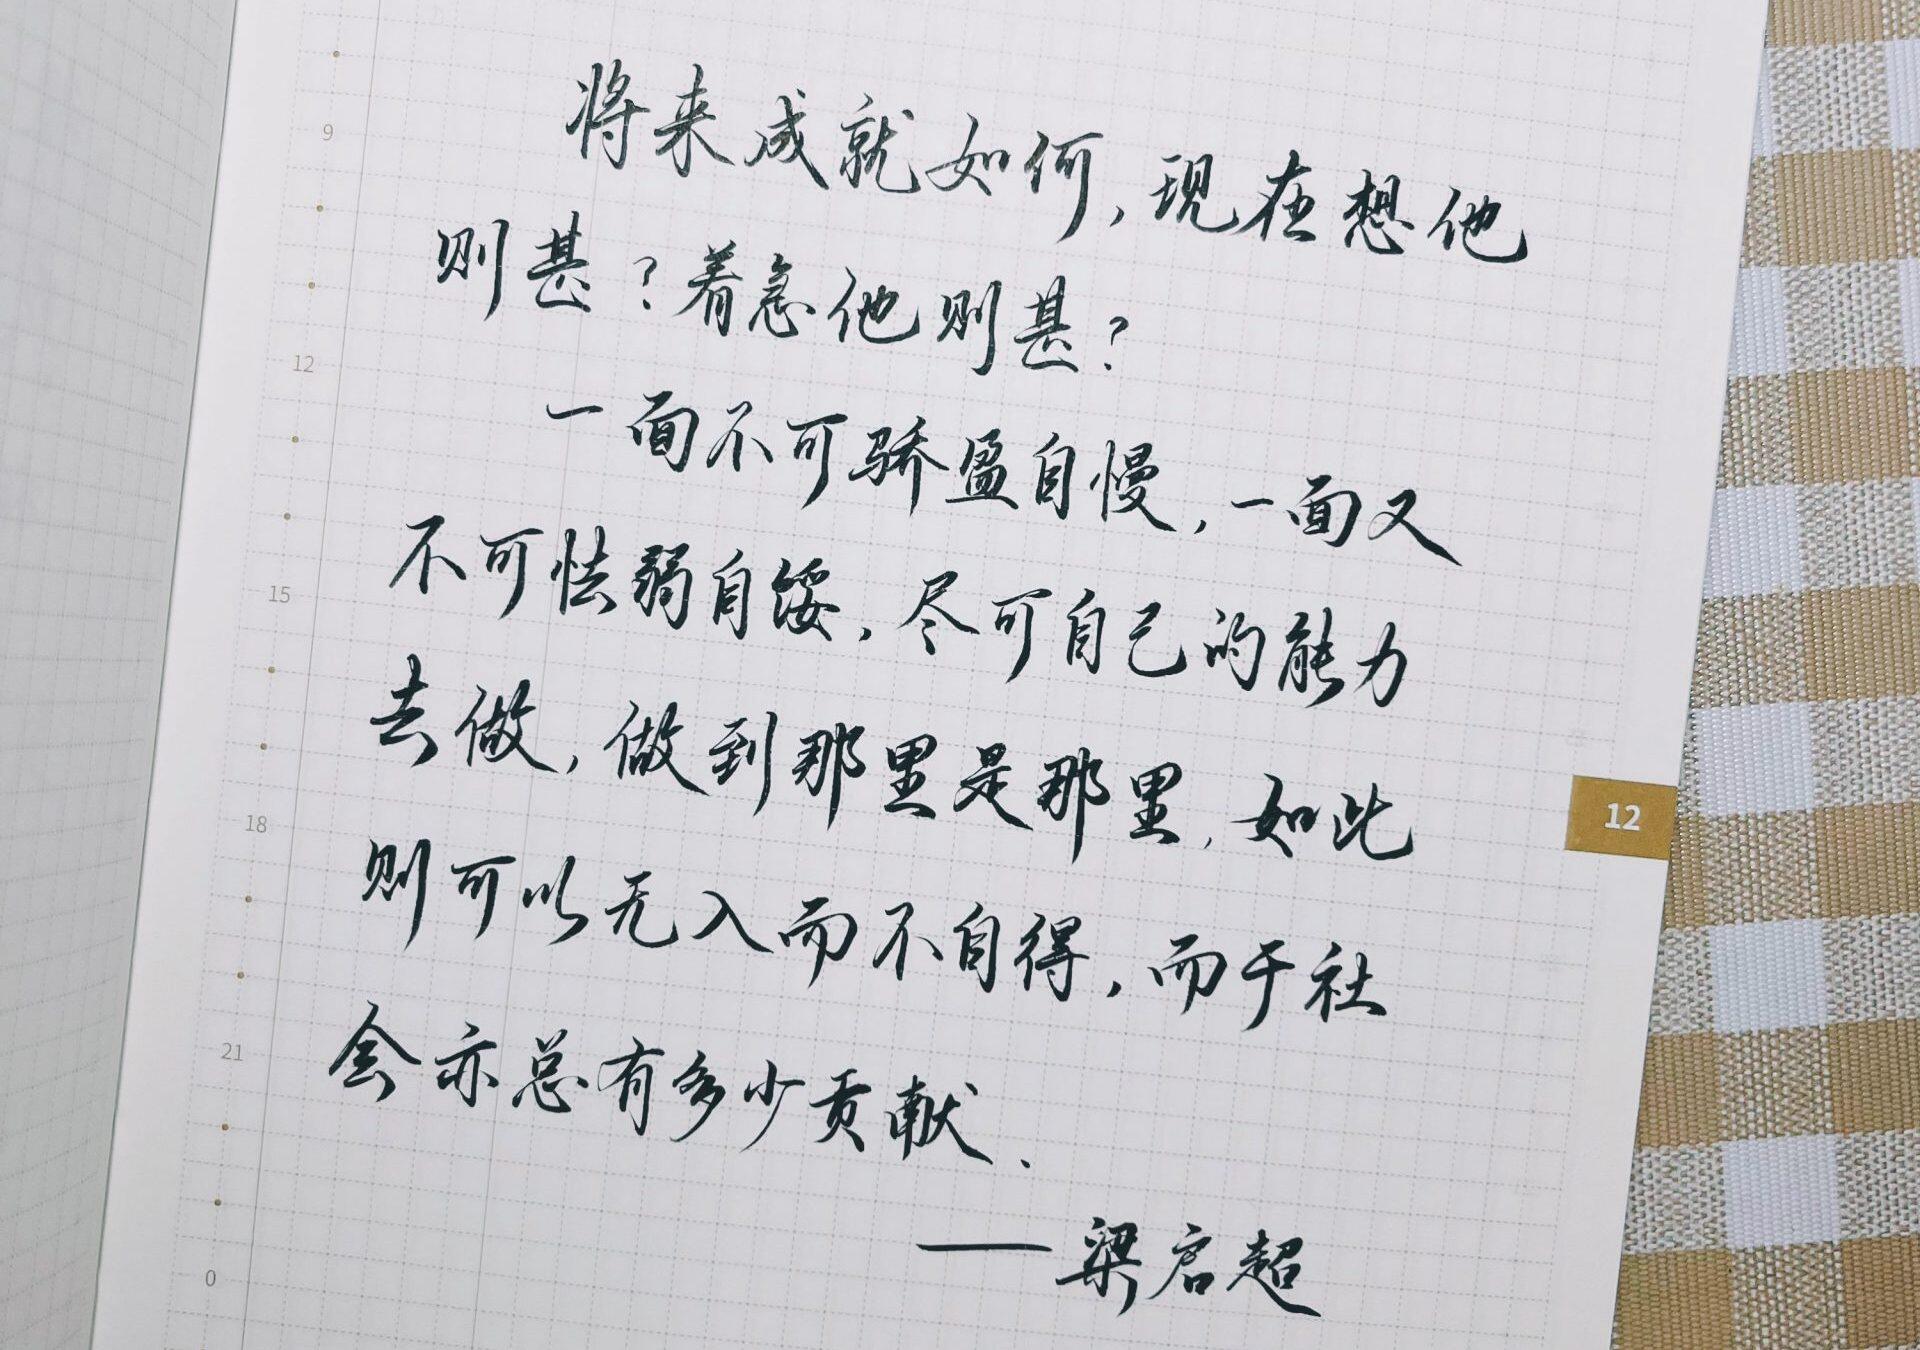 9
将来成就如何，现在想他
则甚？着急他则甚？
12
一面不可骄盈自慢，一面又
不可怯弱自馁，尽可自己的能力
15
去做，做到那里是那里，如此
12
18
则可以无入而不自得，而于社
会亦总有多少贡献。
21
——梁启超
0